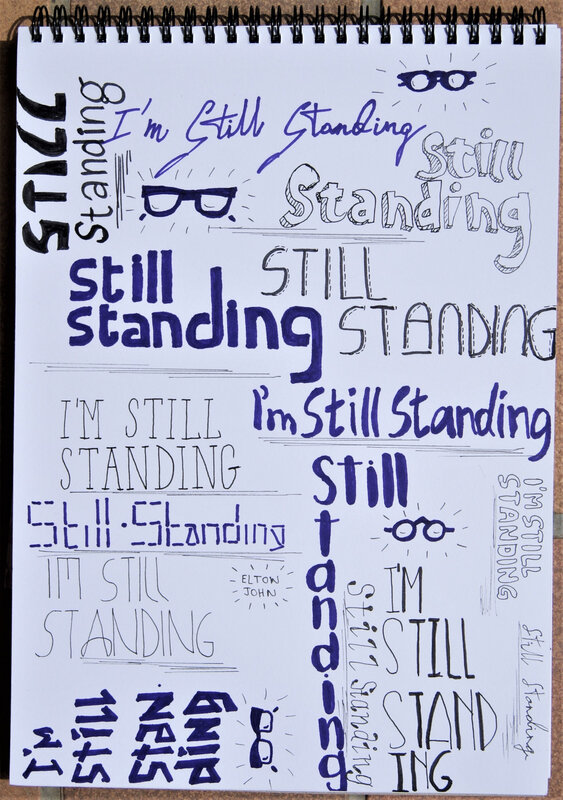 STILL
Standing
I'm Still Standing
Still
Standing
still
standing
STILL
STANDING
I'M STILL
STANDING
I'm Still Standing
Still·Standing
I'M STILL
STANDING
ELTON
JOHN
Still
Standing
Still Standing
I'M
STILL
STAND
ING
I'M STILL
STANDING
Still Standing
I'm
still
stan
ding